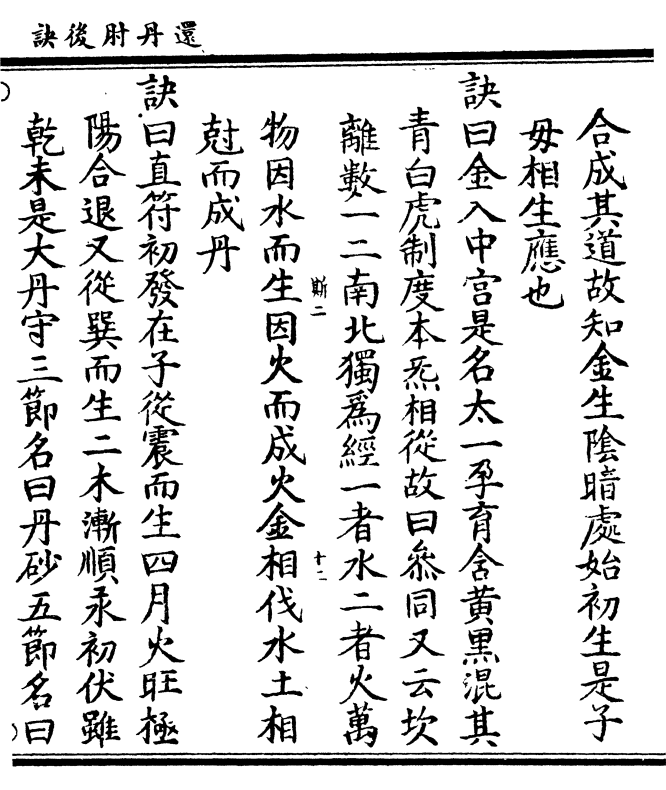 還丹肘後訣
合成其道故知金生陰暗處始初生是子
毋相生應也
訣曰金入中宮是名太一孕育含黃黑混其
青白虎制度本炁相從故曰叅同又云坎
離數一二南北獨爲經一者水二者火萬
物因水而生因火而成火金相伐水土相
斯二
十二
尅而成丹
訣曰直符初發在子從震而生四月火旺極
陽合退又從巽而生二木漸順汞初伏雖
乾未是大丹守三節名曰丹砂五節名曰